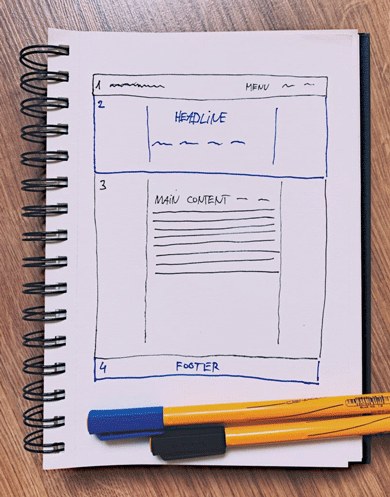 1 MENU
2
HEADLINE
3
MAIN CONTENT
4 FOOTER